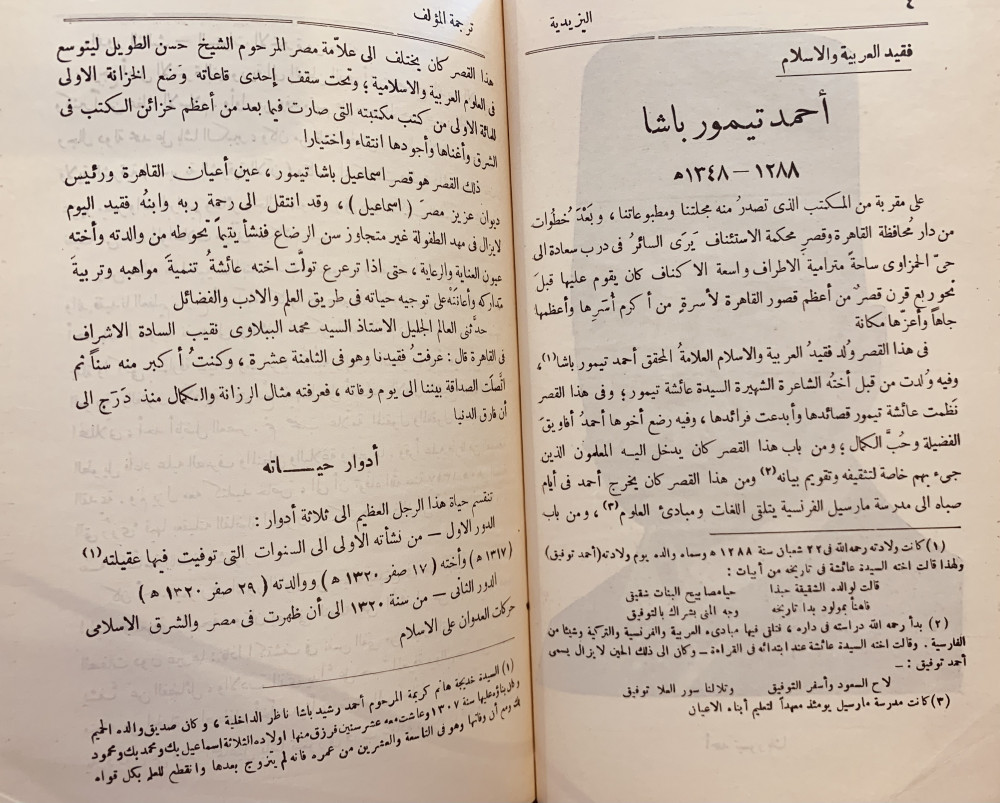 ٤
اليزيدية
فقيد العربية والاسلام
أحمد تيمور باشا
١٢٨٨ – ١٣٤٨ ه
على مقربة من المكتب الذى تصدرُ منه مجلتنا ومطبوعاتنا ، وبَعْدَ خُطُوات
من دار مُحافظة القاهرة وقصرِ محكمة الاستئناف يَرَى السائرُ فى درب سعادة الى
حىّ الحمزاوى ساحةً مترامية الاطراف واسعة الاكناف كان يقوم عليها قبلَ
نحو ربع قرن قصرٌ من أعظم قصور القاهرة لأسرةٍ من أكرم أُسَرِها وأعظمها
جاهاً وأعزّها مكانة
فى هذا القصر وُلد فقيدُ العربية والاسلام العلامةُ المحقق أحمد تيمور باشا(١) ،
وفيه وُلدت من قبل أختُه الشاعرة الشهيرة السيدة عائشة تيمور ؛ وفى هذا القصر
نَظمت عائشة تيمور قصائدها وأبدعت فرائدها ، وفيه رضع أخوها أحمدُ أفاويقَ
الفضيلة وحُبَّ الكمال ؛ ومن باب هذا القصر كان يدخل اليه المعلمون الذين
جىء بهم خاصة لتثقيفه وتقويم بيانه(٢) ومن هذا القصر كان يخرج أحمد فى أيام
صباه الى مدرسة مارسيل الفرنسية يتلقى اللغات ومبادئ العلوم(٣) ، ومن باب
(١) كانت ولادته رحمه الله فى ٢٢ شعبان سنة ١٢٨٨ ه وسماه والده يوم ولادته (أحمد توفيق)
ولهذا قالت اخته السيدة عائشة فى تاريخه من أبيات :
قالت لوالده الشقيقة حبذا حياه مصابيح البنات شقيقى
فاهنأ بمولود بدا تاريخه وجه المنى بشراك بالتوفيق
(٢) بدأ رحمه الله دراسته فى داره ، فتلقى فيها مبادىء العربية والفرنسية والتركية وشيئا من
الفارسية . وقالت اخته السيدة عائشة عند ابتدائه فى القراءة – وكان الى ذلك الحين لا يزال يسمى
أحمد توفيق : –
لاح السعود وأسفر التوفيق وتلا لنا سور العلا توفيق
(٣) كانت مدرسة مارسيل يومئذ معهداً لتعليم أبناء الاعيان
ترجمة المؤلف
هذا القصر كان يختلف الى علاّمة مصر المرحوم الشيخ حسن الطويل ليتوسع
فى العلوم العربية والاسلامية ؛ وتحت سقف إحدى قاعاته وَضع الخزانة الاولى
للمائة الاولى من كتب مكتبته التى صارت فيما بعد من أعظم خزائن الكتب فى
الشرق وأغناها وأجودها انتقاء واختيارا
ذلك القصر هو قصر اسماعيل باشا تيمور ، عين أعيان القاهرة ورئيس
ديوان عزيز مصرَ (اسماعيل) ، وقد انتقل الى رحمة ربه وابنُه فقيد اليوم
لايزال فى مهد الطفولة غير متجاوز سن الرضاع فنشأ يتيماً تحوطه من والدته وأخته
عيون العناية والرعاية ، حتى اذا ترعرع تولّت اخته عائشةُ تنميةَ مواهبه وتربيةَ
مداركه وأعانَتْه على توجيه حياته فى طريق العلم والادب والفضائل
حدّثنى العالم الجليل الاستاذ السيد محمد الببلاوى نقيب السادة الاشراف
فى القاهرة قال : عرفتُ فقيدنا وهو فى الثامنة عشرة ، وكنتُ أكبر منه سناً ثم
اتَّصلَت الصداقة بيننا الى يوم وفاته ، فعرفته مثال الرزانة والكمال منذ دَرَج الى
أن فارق الدنيا
أدوار حياته
تنقسم حياة هذا الرجل العظيم الى ثلاثة أدوار :
الدور الاول – من نشأته الاولى الى السنوات التى توفيت فيها عقيلته(١)
(١٣١٧ ه) وأخته (١٧ صفر ١٣٢٠ ه) ووالدته (٢٩ صفر ١٣٢٠ ه)
الدور الثانى – من سنة ١٣٢٠ الى أن ظهرت فى مصر والشرق الاسلامى
حركات العدوان على الاسلام
(١) السيدة خديجة هانم كريمة المرحوم أحمد رشيد باشا ناظر الداخلية ، وكان صديق والده الحميم
بناؤه عليها سنة ١٣٠٧ وعاشت معه عشر سنين فرزق منها اولاده الثلاثة اسماعيل بك ومحمد بك ومحمود
بك ومع أن وفاتها وهو فى التاسعة والعشرين من عمره فانه لم يتزوج بعدها وانقطع للعلم بكل قواه